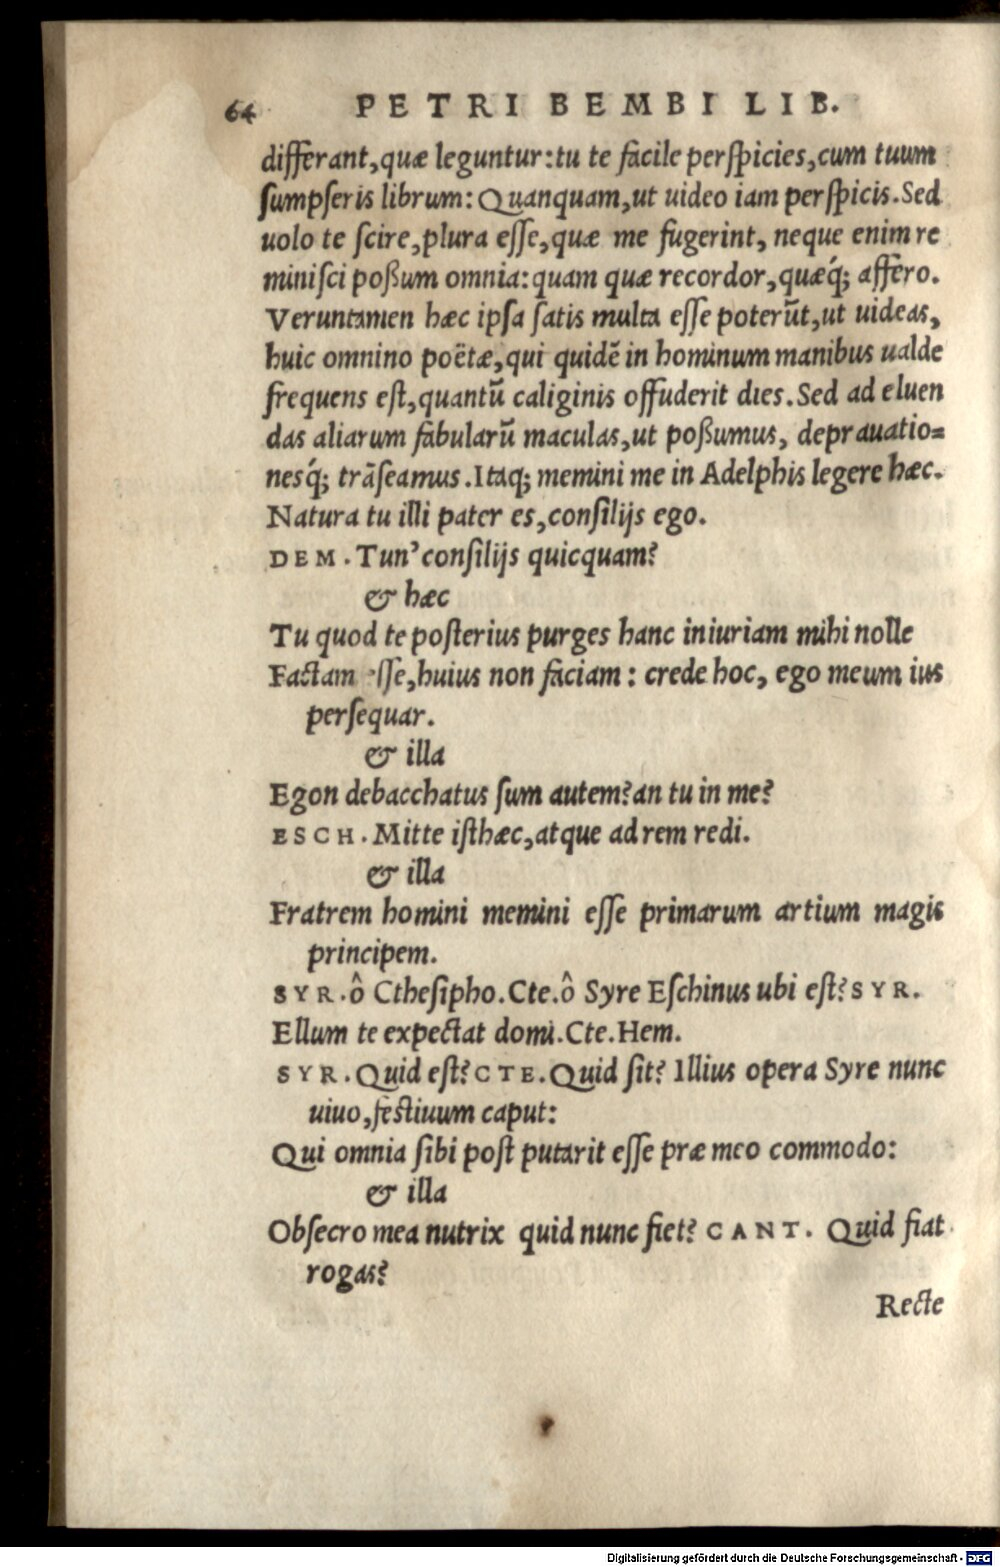 64 PETRI BEMBI LIB.
differant,quæ leguntur:tu te facile perſpicies,cum tuum
ſumpſeris librum: Quanquam,ut uideo iam perſpicis.Sed
uolo te ſcire,plura eſſe,quæ me fugerint, neque enim re
miniſci poßum omnia:quam quæ recordor,quæq́; affero.
Veruntamen hæc ipſa ſatis multa eſſe poterūt,ut uideas,
huic omnino poëtæ,qui quidē in hominum manibus ualde
frequens eſt,quantū caliginis offuderit dies.Sed ad eluen
das aliarum fabularū maculas,ut poßumus, deprauatio=
nesq́; trāſeamus.Itaq; memini me in Adelphis legere hæc.
Natura tu illi pater es,conſilijs ego.
DEM.Tun’conſilijs quicquam?
& hæc
Tu quod te poſterius purges hanc iniuriam mihi nolle
Factam eſſe,huius non faciam: crede hoc, ego meum ius
perſequar.
& illa
Egon debacchatus ſum autem?an tu in me?
ESCH.Mitte iſthæc,atque ad rem redi.
& illa
Fratrem homini memini eſſe primarum artium magis
principem.
SYR.ô Ctheſipho.Cte.ô Syre Eſchinus ubi eſt?SYR.
Ellum te expectat domi.Cte.Hem.
SYR.Quid eſt?CTE.Quid ſit? Illius opera Syre nunc
uiuo,feſtiuum caput:
Qui omnia ſibi poſt putarit eſſe præ meo commodo:
& illa
Obſecro mea nutrix quid nunc fiet? CANT. Quid fiat
rogas?
Recte
Digitalisierung gefördert durch die Deutsche Forschungsgemeinschaft - DFG